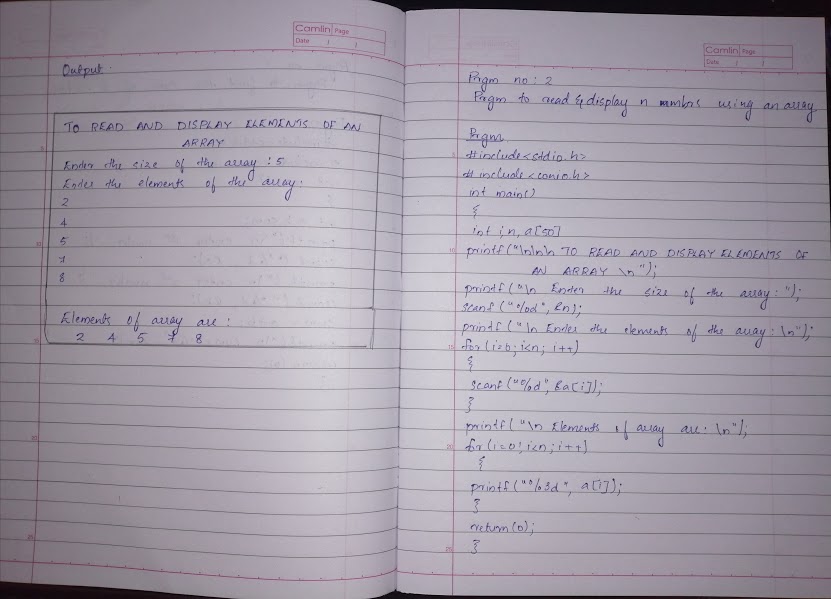 Camlin Page
Date / /
Output :
TO READ AND DISPLAY ELEMENTS OF AN
ARRAY
Enter the size of the array : 5
Enter the elements of the array:
2
4
5
7
8
Elements of array are :
2 4 5 7 8
Camlin Page
Date / /
Prgm no : 2
Prgm to read & display n numbers using an array
Prgm
#include<stdio.h>
#include<conio.h>
int main()
{
int i, n, a[50]
printf("\n\n\n TO READ AND DISPLAY ELEMENTS OF
AN ARRAY \n");
printf("\n Enter the size of the array: ");
scanf("%d", &n);
printf("\n Enter the elements of the array: \n");
for(i=0; i<n; i++)
{
scanf("%d", &a[i]);
}
printf("\n Elements of array are: \n");
for(i=0; i<n; i++)
{
printf("%3d", a[i]);
}
return(0);
}